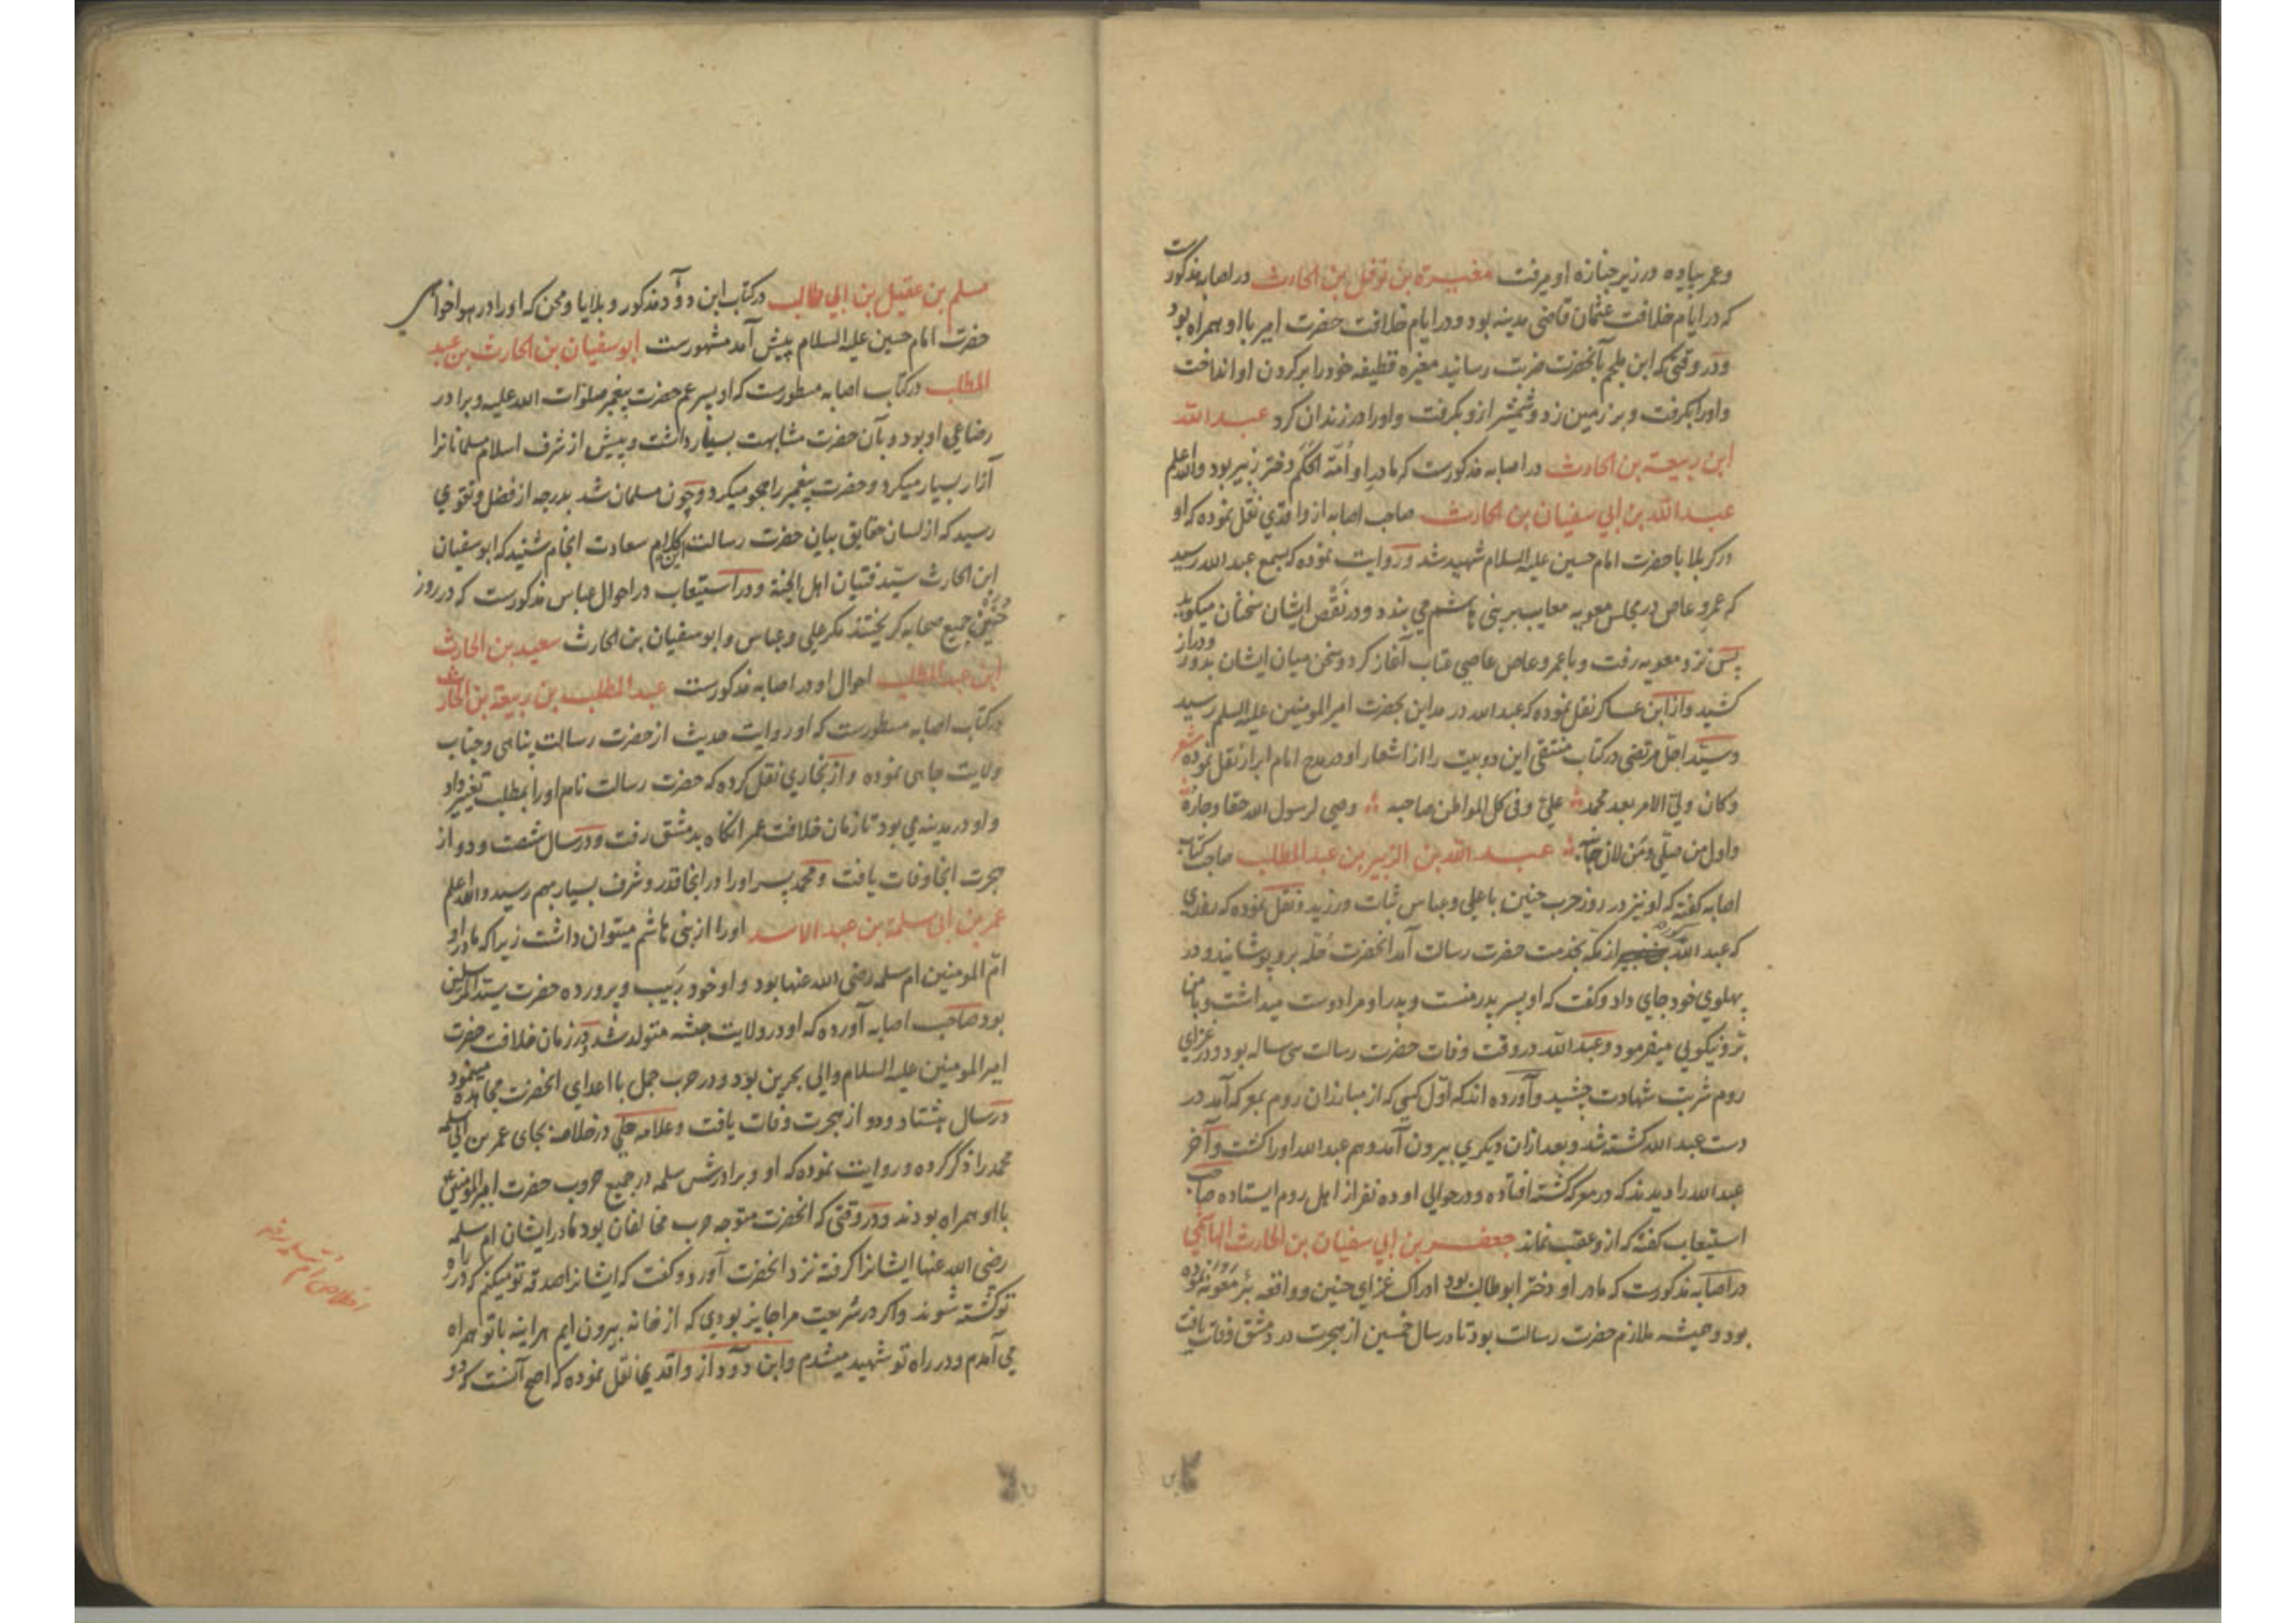 وعمر پیاده در زیر جنازه او میرفت مغیرة بن نوفل بن الحارث در اصابه مذکورست
که در ایام خلافت عثمان قاضی مدینه بود و در ایام خلافت حضرت امیر با او همراه بود
ودر وقتی که ابن ملجم بآنحضرت ضربت رسانید مغیره قطیفه خود را بر کردن او انداخت
واورا بکرفت وبر زمین زد وشمشیر ازو بکرفت واورا در زندان کرد عبد الله
ابن ربیعة بن الحارث در اصابه مذکورست که مادر او امة الحکم دختر زبیر بود والله اعلم
عبد الله بن ابي سفیان بن الحارث صاحب اصابه از واقدي نقل نموده که او
در کربلا با حضرت امام حسین علیه السلام شهید شد وروایت نموده که بسمع عبد الله رسید
که عمرو عاص در مجلس معویه معایب بر بنی هاشم می بندد ودر نقص ایشان سخنان میکوید
پس نزد معویه رفت وبا عمرو عاص عاصی عتاب آغاز کرد وسخن میان ایشان بدور ودراز
کشید واز ابن عساکر نقل نموده که عبد الله در مداین بحضرت امیر المومنین علیه السلم رسید
وسید اجل مرتضی در کتاب منتقی این دو بیت را از اشعار او در مدح امام ابرار نقل نموده شعر
وکان ولي الامر بعد محمد علي وفی کل المواطن صاحبه وصی لرسول الله حقا وجاره
واول من صلی ومن لان جانبه عبد الله بن الزبیر بن عبد المطلب صاحب کتاب
اصابه کفته که او نیز در روز حرب حنین با علی وعباس ثبات ورزید ونقل نموده که روزی
که عبد الله از مکه بخدمت حضرت رسالت آمد انحضرت حله برو پوشانید ودر
پهلوي خود جاي داد وکفت که او پسر پدر منست وپدر او مرا دوست میداشت وبا من
بر ونیکویی میفرمود وعبد الله در وقت وفات حضرت رسالت سی ساله بود ودر غزاي
روم شربت شهادت چشید وآورده اند که اول کسی که از مبارزان روم بمعرکه آمد در
دست عبد الله کشته شد وبعد ازان دیکري بیرون آمد وهم عبد الله اورا کشت وآخر
عبد الله را دیدند که در معرکه کشته افتاده ودر حوالی او ده نفر از اهل روم ایستاده صاحب
استیعاب کفته که ازو عقب نماند جعفر بن ابي سفیان بن الحارث الهاشمي
در اصابه مذکورست که مادر او دختر ابو طالب بود ادراک غزاي حنین وواقعه بئر معونه نموده
بود وهمیشه ملازم حضرت رسالت بود تا در سال خمسین از هجرت در دمشق وفات یافت
مسلم بن عقیل بن ابي طالب در کتاب ابن داود مذکور وبلایا ومحن که اورا در هوا خواهی
حضرت امام حسین علیه السلام پیش آمد مشهورست ابو سفیان بن الحارث بن عبد
المطلب در کتاب اصابه مسطورست که او پسر عم حضرت پیغمبر صلوات الله علیه وبرادر
رضاعي او بود وبآن حضرت مشابهت بسیار داشت وپیش از شرف اسلام مسلمانانرا
آزار بسیار میکرد وحضرت پیغمبر را هجو میکرد وچون مسلمان شد بدرجه از فضل وتقوي
رسید که از لسان حقایق بیان حضرت رسالت این کلام سعادت انجام شنید که ابو سفیان
ابن الحارث سید فتیان اهل الجنة ودر استیعاب در احوال عباس مذکورست که در روز
حنین جمیع صحابه کریختند مکر علی وعباس وابو سفیان بن الحارث سعید بن الحارث
ابن عبد المطلب احوال او در اصابه مذکورست عبد المطلب بن ربیعة بن الحارث
در کتاب اصابه مسطورست که او روایت حدیث از حضرت رسالت پناهی وجناب
ولایت جاهی نموده واز بخاري نقل کرده که حضرت رسالت نام اورا بمطلب تغییر داد
واو در مدینه می بود تا زمان خلافت عمر انکاه بدمشق رفت ودر سال شصت ودو از
هجرت انجا وفات یافت ومحمد پسر اورا در انجا قدر وشرف بسیار بهم رسید والله اعلم
عمر بن ابی سلمة بن عبد الاسد اورا از بنی هاشم میتوان داشت زیرا که مادر او
ام المومنین ام سلمه رضی الله عنها بود واو خود ربیب وپرورده حضرت سید المرسلین
بود صاحب اصابه آورده که او در ولایت حبشه متولد شد ودر زمان خلافت حضرت
امیر المومنین علیه السلام والي بحرین بود ودر حرب جمل با اعداي انحضرت مجاهده مینمود
در سال هشتاد ودو از هجرت وفات یافت وعلامه حلي در خلاصه بجای عمر بن ابی سلمه
محمد را ذکر کرده وروایت نموده که او وبرادرش سلمه در جمیع حروب حضرت امیر المومنین
با او همراه بودند ودر وقتی که انحضرت متوجه حرب مخالفان بود مادر ایشان ام سلمه
رضی الله عنها ایشانرا کرفته نزد انحضرت آورد وکفت که ایشانرا صدقه تو میکنم که در راه
تو کشته شوند واکر در شریعت مرا جایز بودی که از خانه بیرون ایم هر اینه با تو همراه
می آمدم ودر راه تو شهید میشدم وابن داود از واقدی نقل نموده که اصح آنست که دو